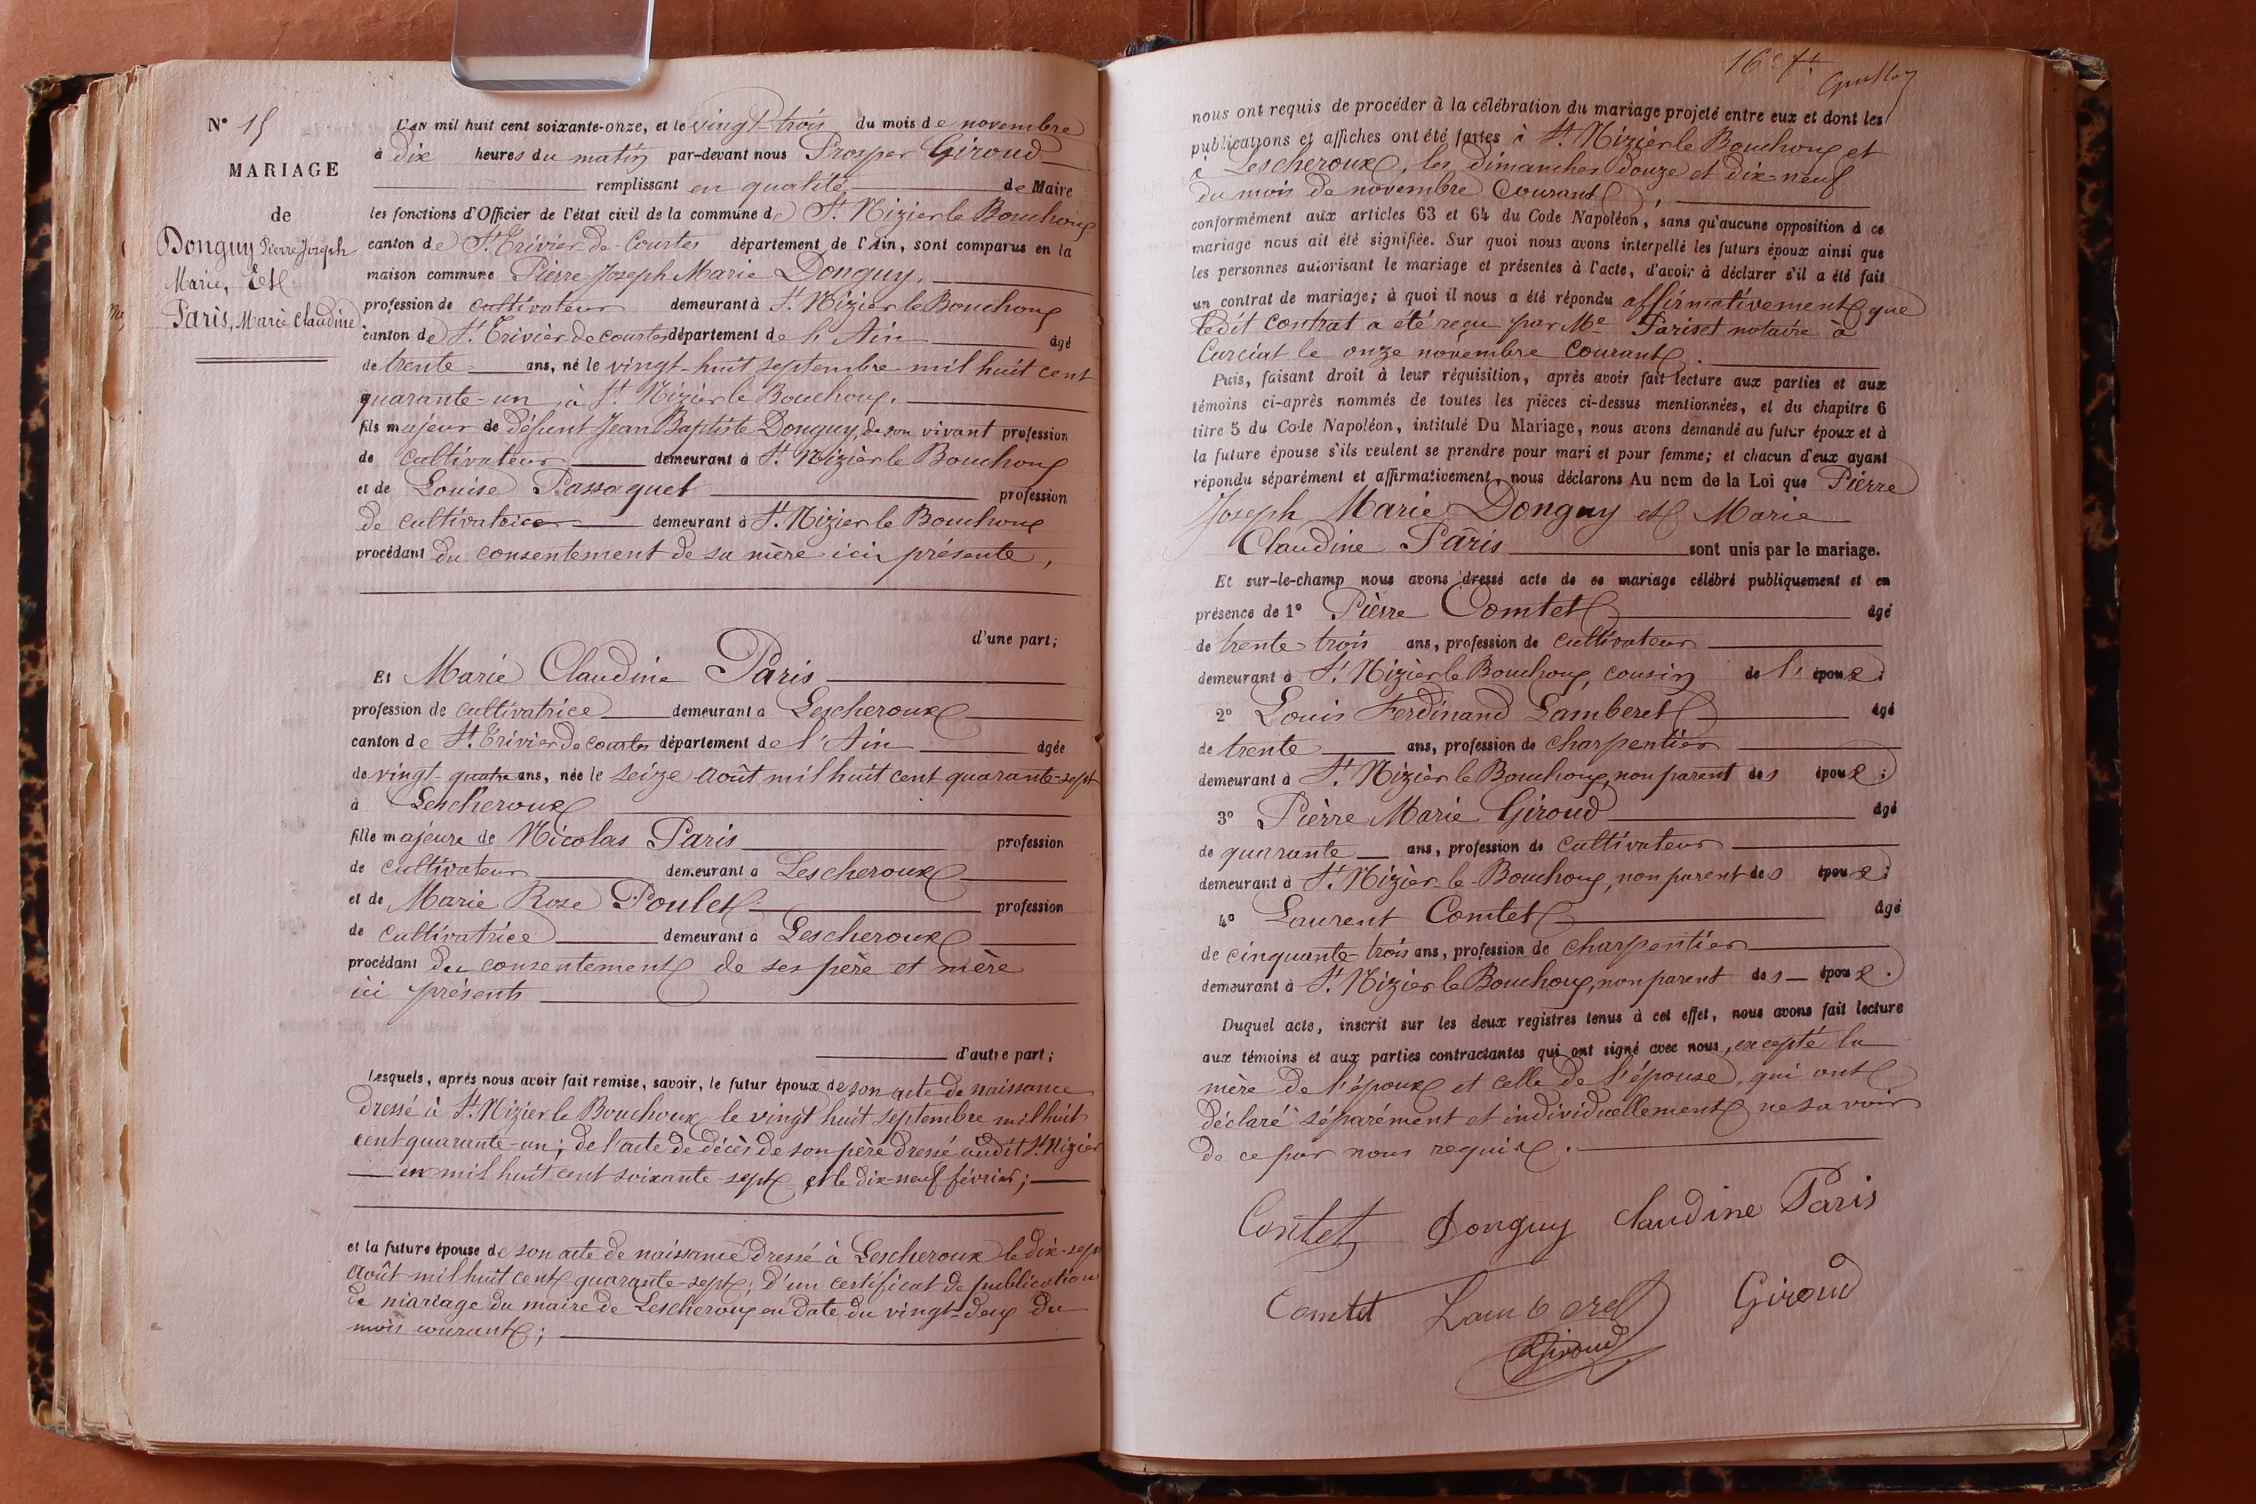 N° 15
MARIAGE
de
Donguy Pierre Joseph
Marie, Et
Paris, Marie Claudine
L'an mil huit cent soixante-onze, et le vingt-trois du mois de novembre
à dix heures du matin par-devant nous Prosper Giroud
remplissant en qualité de Maire
les fonctions d'Officier de l'état civil de la commune de St. Nizier le Bouchoux
canton de St. Trivier de Courtes département de l'Ain, sont comparus en la
maison commune Pierre Joseph Marie Donguy,
profession de cultivateur demeurant à St. Nizier le Bouchoux
canton de St. Trivier de courtes département de l'Ain âgé
de trente ans, né le vingt-huit septembre mil huit cent
quarante-un, à St. Nizier le Bouchoux,
fils majeur de défunt Jean Baptiste Donguy, de son vivant profession
de cultivateur demeurant à St. Nizier le Bouchoux
et de Louise Passaquet profession
de cultivatrice demeurant à St. Nizier le Bouchoux
procédant du consentement de sa mère ici présente,
d'une part;
Et Marie Claudine Paris
profession de cultivatrice demeurant à Lescheroux
canton de St. Trivier de Courtes département de l'Ain âgée
de vingt-quatre ans, née le seize Août mil huit cent quarante-sept
à Lescheroux
fille majeure de Nicolas Paris profession
de cultivateur demeurant à Lescheroux
et de Marie Rose Poulet profession
de cultivatrice demeurant à Lescheroux
procédant du consentement de ses père et mère
ici présents
d'autre part;
Lesquels, après nous avoir fait remise, savoir, le futur époux de son acte de naissance
dressé à St. Nizier le Bouchoux le vingt huit septembre mil huit
cent quarante-un; de l'acte de décès de son père dressé audit St. Nizier
en mil huit cent soixante sept et le dix-neuf février;
et la future épouse de son acte de naissance dressé à Lescheroux le dix-sept
Août mil huit cent quarante-sept; d'un certificat de publication
de mariage du maire de Lescheroux en date du vingt-deux du
mois courant;
16e ft.
nous ont requis de procéder à la célébration du mariage projeté entre eux et dont les
publications et affiches ont été faites à St. Nizier le Bouchoux et
à Lescheroux, les dimanches douze et dix-neuf
du mois de novembre Courant,
conformément aux articles 63 et 64 du Code Napoléon, sans qu'aucune opposition à ce
mariage nous ait été signifiée. Sur quoi nous avons interpellé les futurs époux ainsi que
les personnes autorisant le mariage et présentes à l'acte, d'avoir à déclarer s'il a été fait
un contrat de mariage; à quoi il nous a été répondu affirmativement que
ledit contrat a été reçu par Me Pariset notaire à
Curciat le onze novembre courant.
Puis, faisant droit à leur réquisition, après avoir fait lecture aux parties et aux
témoins ci-après nommés de toutes les pièces ci-dessus mentionnées, et du chapitre 6
titre 5 du Code Napoléon, intitulé Du Mariage, nous avons demandé au futur époux et à
la future épouse s'ils veulent se prendre pour mari et pour femme; et chacun d'eux ayant
répondu séparément et affirmativement, nous déclarons Au nom de la Loi que Pierre
Joseph Marie Donguy et Marie
Claudine Paris sont unis par le mariage.
Et sur-le-champ nous avons dressé acte de ce mariage célébré publiquement et en
présence de 1° Pierre Comtet âgé
de trente trois ans, profession de cultivateur
demeurant à St. Nizier le Bouchoux, cousin de l'époux;
2° Louis Ferdinand Lamberet âgé
de trente ans, profession de charpentier
demeurant à St. Nizier le Bouchoux, non parent des époux;
3° Pierre Marie Giroud âgé
de quarante ans, profession de cultivateur
demeurant à St. Nizier-le-Bouchoux, non parent des époux;
4° Laurent Comtet âgé
de cinquante-trois ans, profession de charpentier
demeurant à St. Nizier le Bouchoux, non parent des époux.
Duquel acte, inscrit sur les deux registres tenus à cet effet, nous avons fait lecture
aux témoins et aux parties contractantes qui ont signé avec nous, excepté la
mère de l'époux et celle de l'épouse, qui ont
déclaré séparément et individuellement ne savoir
de ce par nous requis.
Comtet Donguy Claudine Paris
Comtet Lamberet Giroud
Giroud